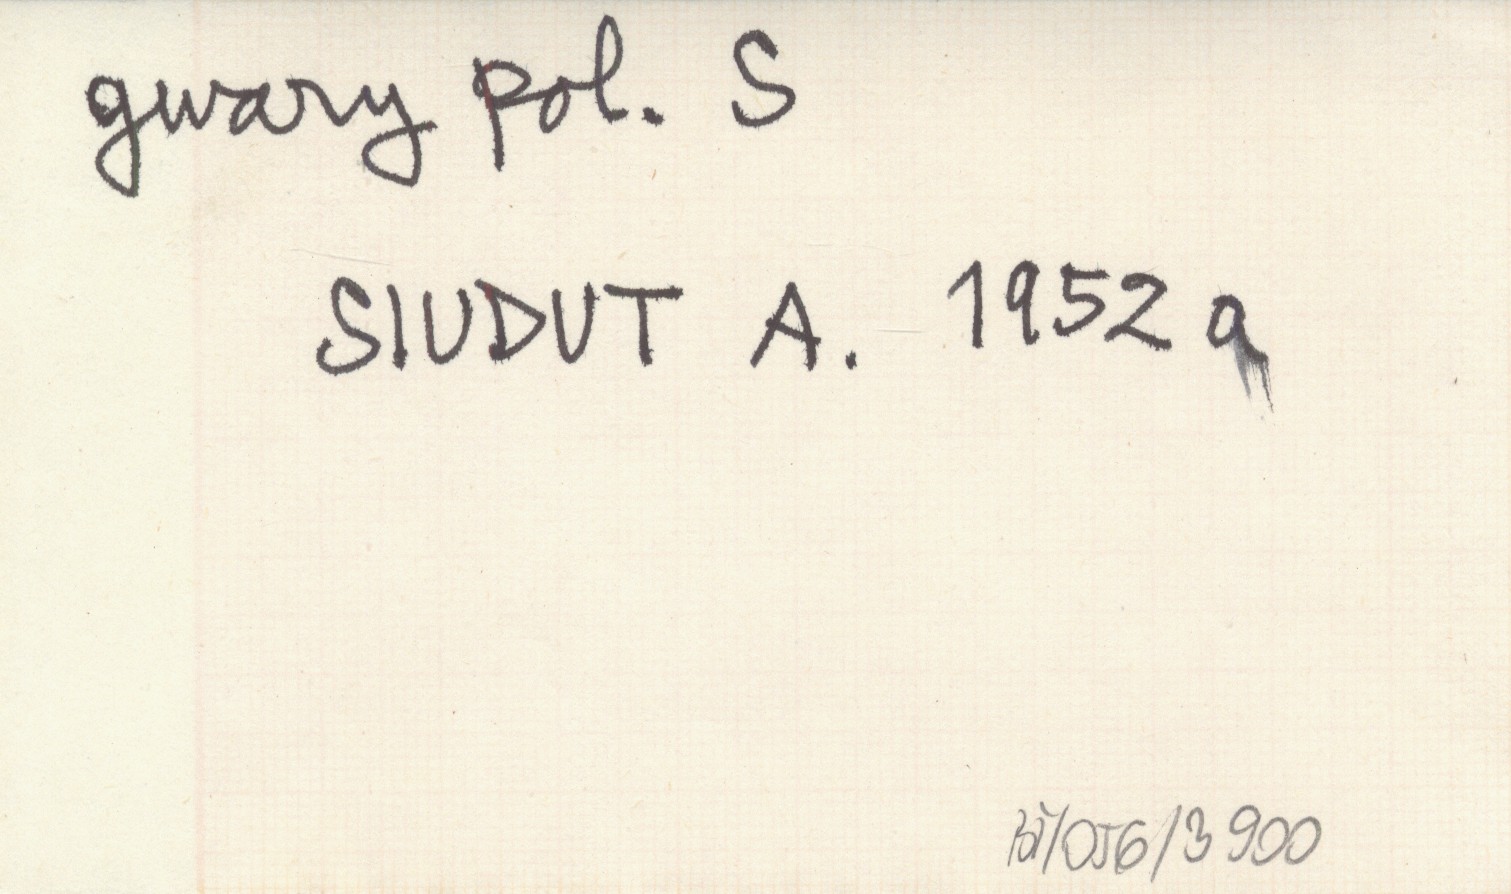 gwary pol. S
SIUDUT A. 1952 a
/056/3 900